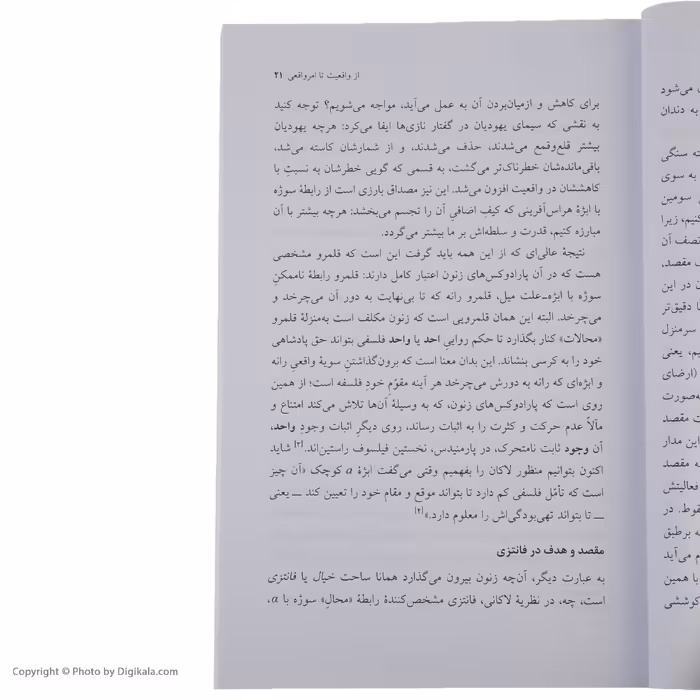 از واقعیت تا امر واقعی ۲۱
برای کاهش و ازمیان‌بردن آن به عمل می‌آید، مواجه می‌شویم؟ توجه کنید
به نقشی که سیمای یهودیان در گفتار نازی‌ها ایفا می‌کرد: هرچه یهودیان
بیشتر قلع‌وقمع می‌شدند، حذف می‌شدند، و از شمارشان کاسته می‌شد،
باقی‌مانده‌شان خطرناک‌تر می‌گشت، به قسمی که گویی خطرشان به نسبتِ با
کاهششان در واقعیت افزون می‌شد. این نیز مصداق بارزی است از رابطهٔ سوژه
با ابژهٔ هراس‌آفرینی که کیفِ اضافیِ آن را تجسم می‌بخشد: هرچه بیشتر با آن
مبارزه کنیم، قدرت و سلطه‌اش بر ما بیشتر می‌گردد.
نتیجهٔ عالی‌ای که از این همه باید گرفت این است که قلمرو مشخصی
هست که در آن پارادوکس‌های زنون اعتبار کامل دارند: قلمرو رابطهٔ ناممکنِ
سوژه با ابژه-علت میل، قلمرو رانه که تا بی‌نهایت به دور آن می‌چرخد و
می‌چرخد. البته این همان قلمرویی است که زنون مکلف است به‌منزلهٔ قلمرو
«محالات» کنار بگذارد تا حکم رواییِ احد یا واحد فلسفی بتواند حق پادشاهی
خود را به کرسی بنشاند. این بدان معنا است که برون‌گذاشتنِ سویهٔ واقعیِ رانه
و ابژه‌ای که رانه به دورش می‌چرخد هر آینه مقوّم خودِ فلسفه است؛ از همین
روی است که پارادوکس‌های زنون، که به وسیلهٔ آن‌ها تلاش می‌کند امتناع و
مآلاً عدم حرکت و کثرت را به اثبات رساند، روی دیگرِ اثبات وجودِ واحد،
آن وجود ثابت نامتحرک، در پارمنیدس، نخستین فیلسوف راستین‌اند.[۳] شاید
اکنون بتوانیم منظور لاکان را بفهمیم وقتی می‌گفت ابژهٔ a کوچک «آن چیز
است که تأمّل فلسفی کم دارد تا بتواند موقع و مقام خود را تعیین کند ــ یعنی
ــ تا بتواند تهی‌بودگی‌اش را معلوم دارد.»[۴]
مقصد و هدف در فانتزی
به عبارت دیگر، آن‌چه زنون بیرون می‌گذارد همانا ساحت خیال یا فانتزی
است، چه، در نظریهٔ لاکانی، فانتزی مشخص‌کنندهٔ رابطهٔ «محالِ» سوژه با a،
می‌شود
به دندان
سنگی
به سوی
سومین
زیرا
آن
مقصد،
در این
دقیق‌تر
سرمنزل
یعنی
(ارضای
مقصد
این مدار
مقصد
فعالیتش
در
برطبق
می‌آید
با همین
کوششی
Copyright © Photo by Digikala.com